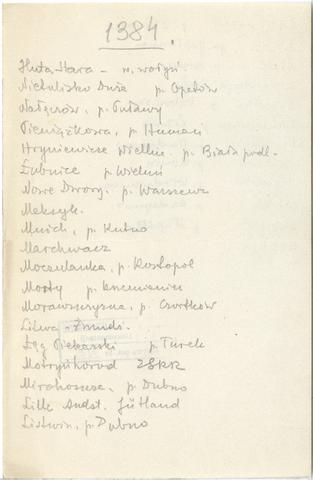 1384.
Huta-Stara - w. wołyń.
Nietulisko Duże p. Opatów
Nałęczów, p. Puławy
Pieniążkowa, p. Humań
Hryniewicze Wielkie. p. Biała podl.
Łubnice p. Wieluń
Nowe Dwory. p. Warszawa
Meksyk.
Mnich, p. Kutno
Marchwacz
Moczulanka, p. Kostopol
Mosty p. Krzemieniec
Morawszczyzna, p. Czortków
Litwa - Żmudź.
Łęg Piekarski p. Turek
Motryhorod ZSRR
Mirohoszcza, p. Dubno
Lille Andst. Jütland
Listwin, p. Dubno